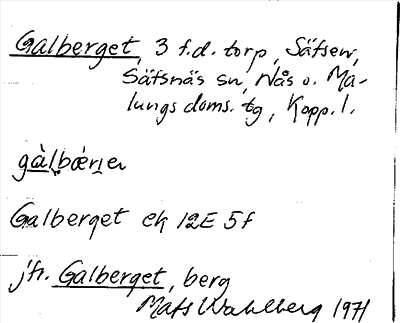 Galberget, 3 f.d. torp, Säfsen,
Säfsnäs sn, Nås o. Ma-
lungs doms. tg, Kopp. l.
gàlbærıe
Galberget ek 12E 5f
jfr. Galberget, berg
Mats Wahlberg 1971